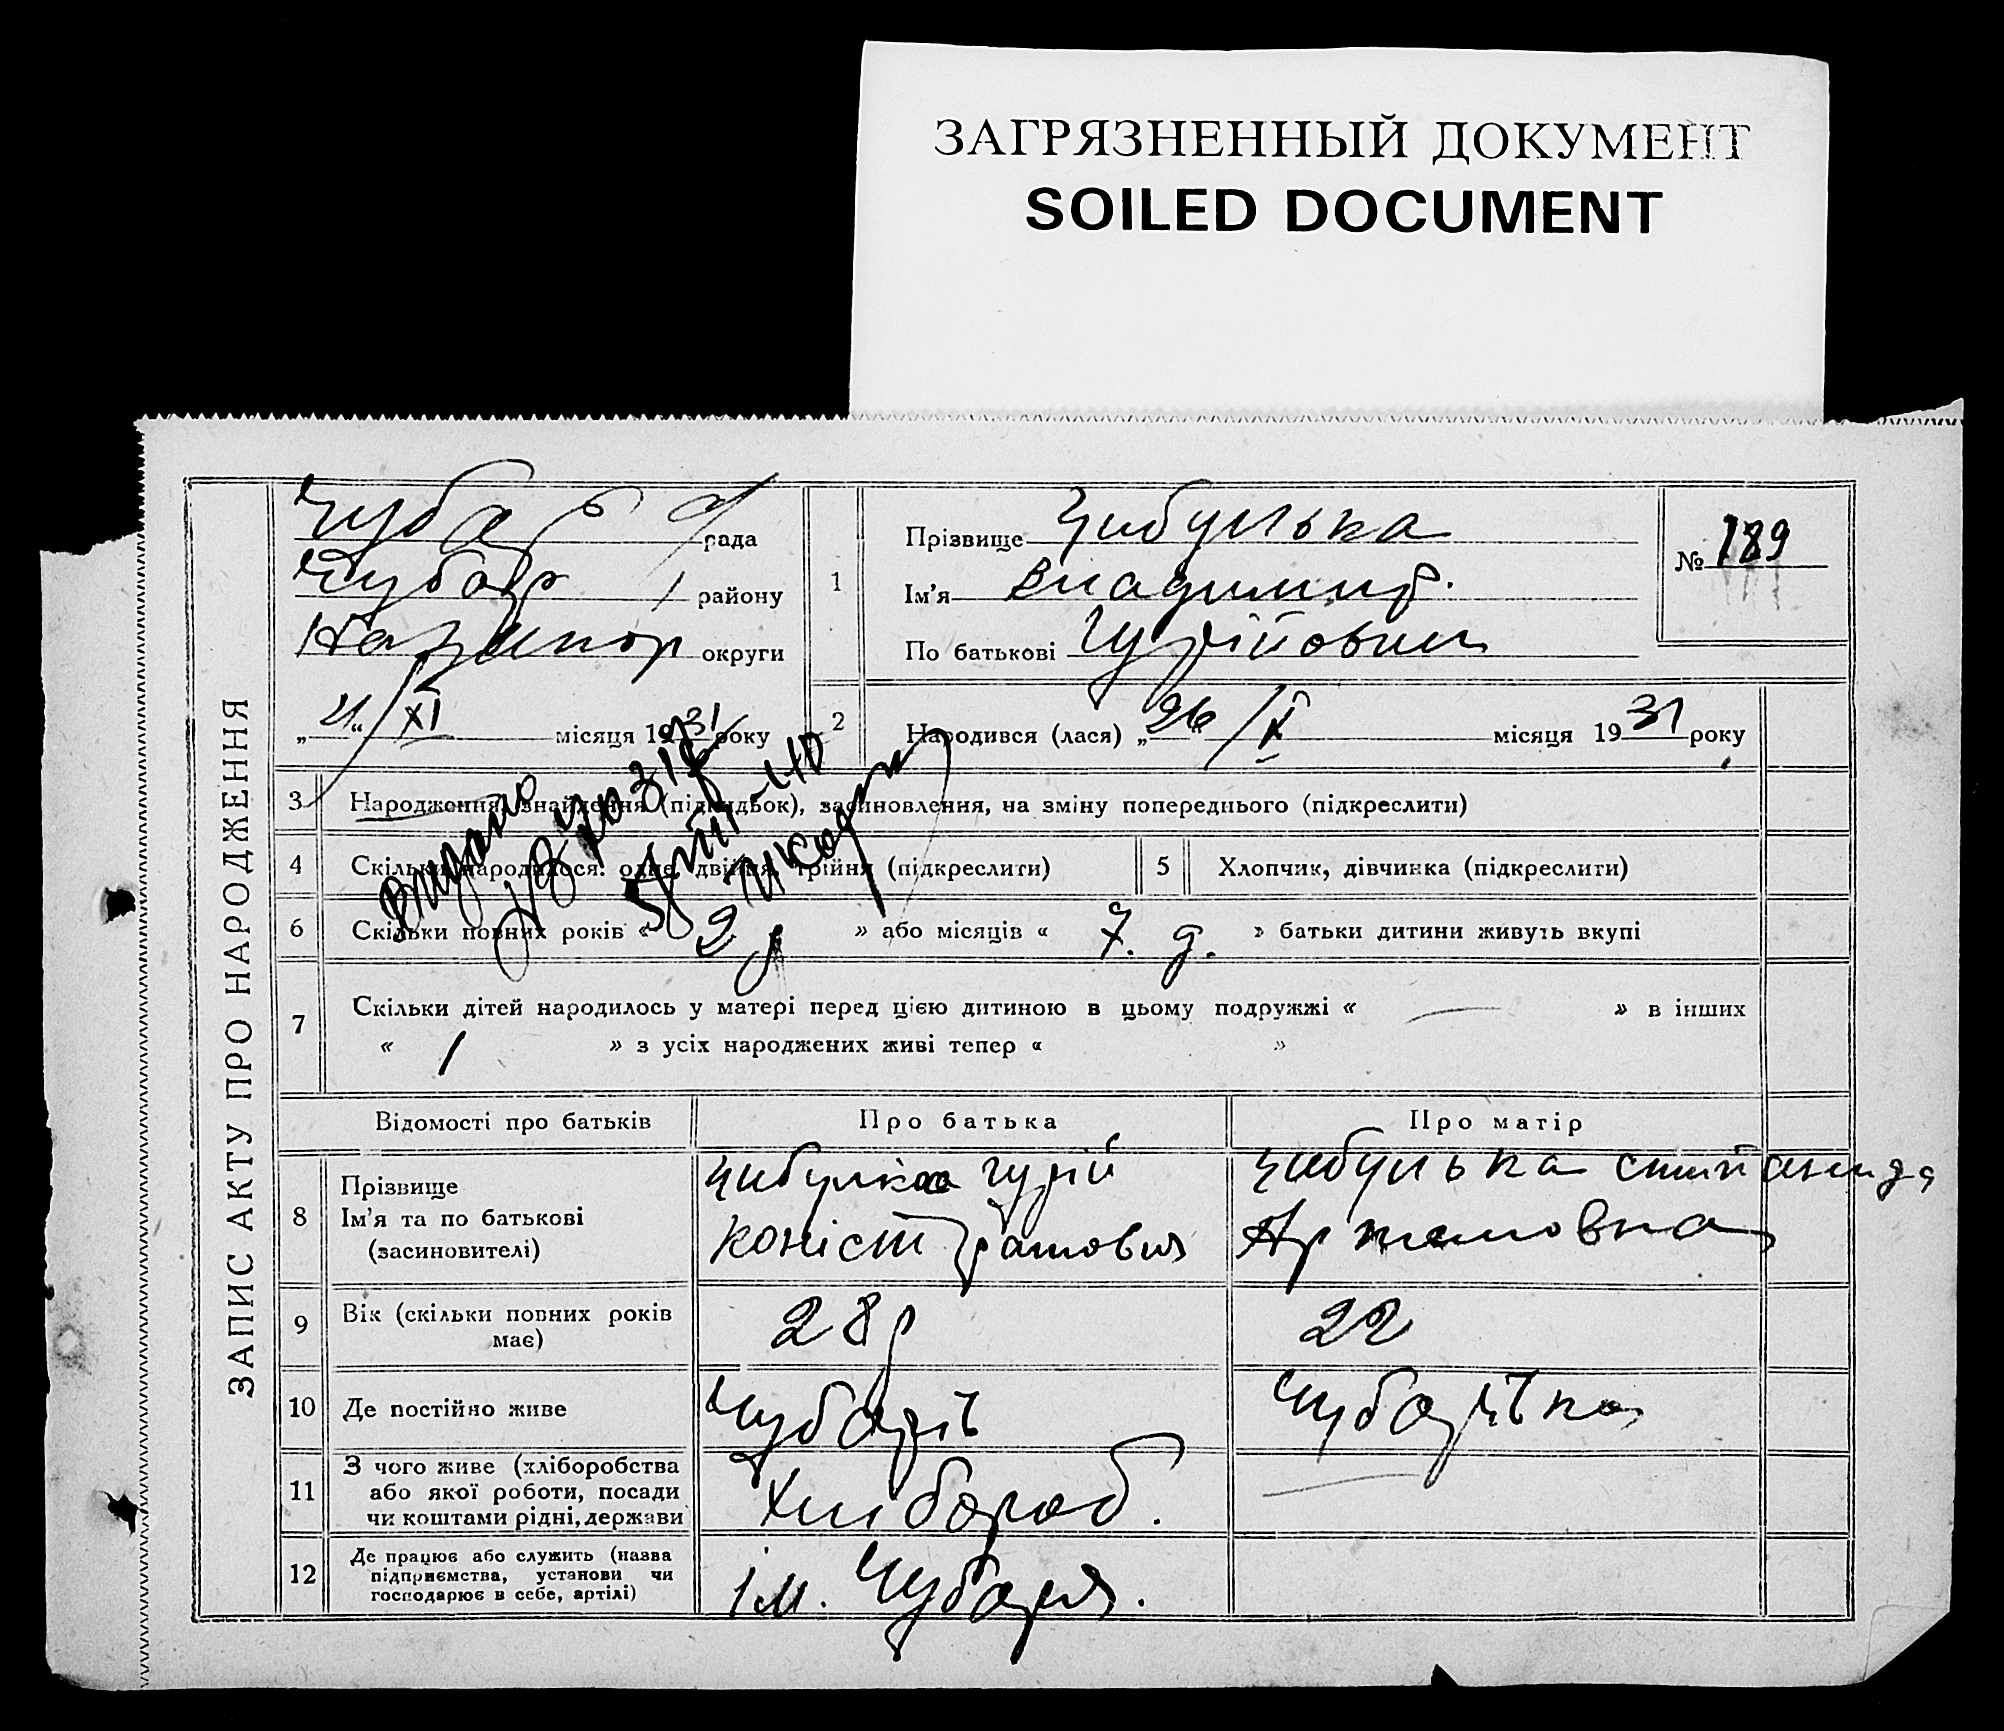 ЗАГРЯЗНЕННЫЙ ДОКУМЕНТ
SOILED DOCUMENT
ЗАПИС АКТУ ПРО НАРОДЖЕННЯ
рада
району
округи
„ “ XI місяця 1931 року
1
Прізвище Цибулька
Ім'я Владимир.
По батькові Гурійович
№ 189
2 Народився (лася) „26“ / X місяця 1931 року
3 Народження, знайдення (підкидьок), засиновлення, на зміну попереднього (підкреслити)
4 Скільки народилося: одне, двійня, трійня (підкреслити)
5 Хлопчик, дівчинка (підкреслити)
Видано
6 Скільки повних років « 2 » або місяців « 7. д. » батьки дитини живуть вкупі
7 Скільки дітей народилось у матері перед цією дитиною в цьому подружжі « — » в інших
« 1 » з усіх народжених живі тепер « »
Відомості про батьків Про батька Про матір
8 Прізвище
Ім'я та по батькові
(засиновителі)
Цибулка Гурій
Цибулька
Артемовна
9 Вік (скільки повних років
має)
28 р
22
10 Де постійно живе
Чубарів
Чубарівка
11 З чого живе (хліборобства
або якої роботи, посади
чи коштами рідні, держави
Хлибороб.
—
12 Де працює або служить (назва
підприємства, установи чи
господарює в себе, артілі)
ім. Чубаря.